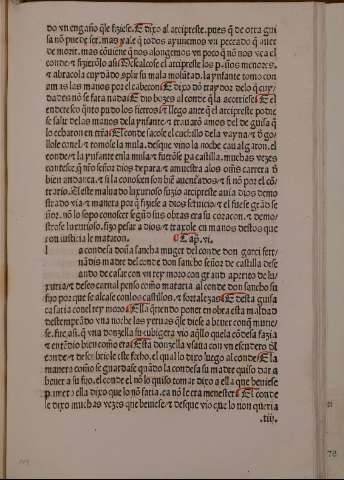 do vn engaño q̃ le fiziese. E dixo al arcipreste. pues q̃ de otra gui
sa nõ puede ser. mas vale q̃ todos ayunemos vn peccado q̃ auer
de morir. mas cõuiene q̃ nos alonguemos vn poco q̃ nõ nos vea el
conde. & fizierõlo asi. Descalçose el arcipreste los paños menores.
& abraçola cuydãdo conplir su mala volũtad. la ynfante tomo con
amas las manos por el cabeçon. E dixo dõ traydor de lo q̃ cuy
dades nõ se fara nada. E dio bozes al conde q̃ la acorriese. E el
conde rãto quãto pudo los fierros & llego ante q̃ el arcipreste pudie
se salir de las manos de la ynfante & trauarõ amos del de guisa q̃
lo echaron en tr̃ra. E el conde sacole el cuchillo de la vayna & de
gollole con el. & tomole la mula. desque vino la noche caualgaron. el
conde & la ynfante en la mula & fuerõse pa castilla. muchas vezes
contesce q̃ nr̃o señor dios depara & amuestra a los omẽs carrera de
bien andança. & si la conoscen son biẽ auenturados. & si nõ por el cõ
trario. E este maluado luxurioso suzio arcipreste auia dios demo
strado via & manera por q̃ fiziese a dios seruicio & el fuese grãde se
ñor. nõ lo sopo conoscer segund sus obras era su coraçon. & demo
strose luxurioso. fizo pesar a dios & traxole en manos destos que
con iusticia le mataron. Cap. vi.
la condesa doña sancha muger del conde don garci ferr
nãdis madre del conde don sancho señor de castilla dese
ando de casar con vn rey moro con grand apetito de lu
xuria & deseo carnal penso como mataria al conde don sancho su
fijo por que se alçase con los castillos & fortalezas. E desta guisa
casaria con el rey moro. E ella q̃riendo poner en obra esta maldad
destempraṇdo vna noche las yeruas q̃ le diese a beuer con q̃ murie
se. fue asi. q̃ vna donzella su cubigera vio aq̃llo que la cõdesa fazia
& entẽdio bien como era. Esta donzella vsaua con vn escudero del
conde & descubriole este fecho. el qual lo dixo luego al conde. E la
manera como se guardase quãdo la condesa su madre quiso dar a
beuer a su fijo. el conde el nõ lo quiso tomar dixo a ella que beuiese
primero. ella dixo que lo nõ faria. ca nõ le era menester. E el conde
le dixo muchas vezes que beuiese & desque vio que lo non queria
78